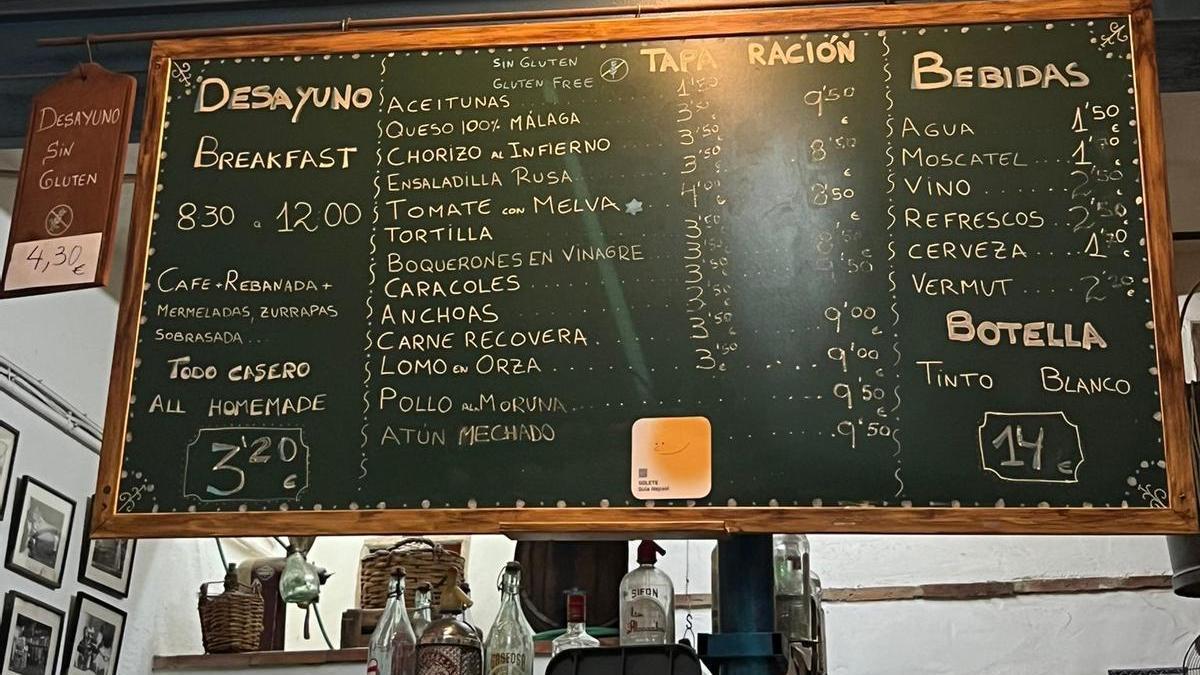 DESAYUNO
SIN
GLUTEN
4,30€
DESAYUNO
BREAKFAST
8'30 a 12'00
CAFE + REBANADA +
MERMELADAS, ZURRAPAS
SOBRASADA...
TODO CASERO
ALL HOMEMADE
3'20 €
SIN GLUTEN
GLUTEN FREE
TAPA RACIÓN
ACEITUNAS 1'50
QUESO 100% MÁLAGA 3'50 9'50 €
CHORIZO AL INFIERNO 3'50
ENSALADILLA RUSA 3'50 8'50 €
TOMATE CON MELVA 4'00 8'50 €
TORTILLA 3'50
BOQUERONES EN VINAGRE 3'50
CARACOLES
ANCHOAS
CARNE RECOVERA 3'50 9'00 €
LOMO EN ORZA 3'50 € 9'00 €
POLLO A LA MORUNA 9'50 €
ATÚN MECHADO 9'50
SOLETE
Guía Repsol
BEBIDAS
AGUA 1'50 €
MOSCATEL
VINO 2'50
REFRESCOS
CERVEZA 1'70 €
VERMUT 2'20
BOTELLA
TINTO BLANCO
14 €
SIFON